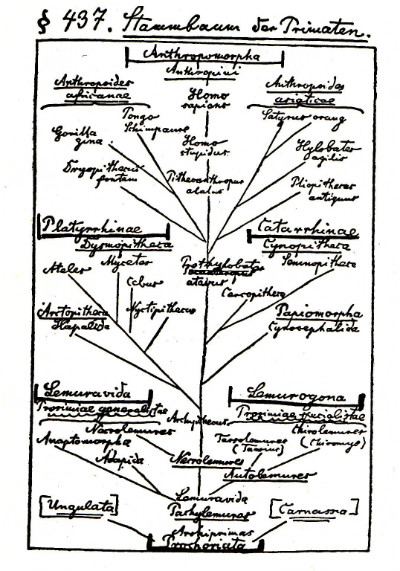 § 437. Stammbaum der Primaten.
Anthropomorpha
Anthropini
Anthropoides
africanae
Homo
sapiens
Anthropoides
asiaticae
Pongo
Schimpanse
Satyrus orang
Gorilla
gina
Homo
stupidus
Hylobates
agilis
Dryopithecus
fontani
Pithecanthropus
alalus
Pliopithecus
antiquus
Platyrrhinae
Dysmopitheca
Catarrhinae
Cynopitheca
Ateles
Mycetes
Prothylobates
atavus
Semnopitheca
Cebus
Cercopitheca
Arctopitheca
Hapalida
Nyctipithecus
Papiomorpha
Cynocephalida
Lemuravida
Prosimiae generalistae
Lemurogona
Prosimiae specialistae
Necrolemures
Archipithecus
Chirolemures
(Chiromys)
Anaptomorpha
Tarsolemures
(Tarsius)
Adapida
Necrolemures
Autolemures
Lemuravida
Pachylemures
[Ungulata]
[Carnassia]
Archiprimas
Prochoriata